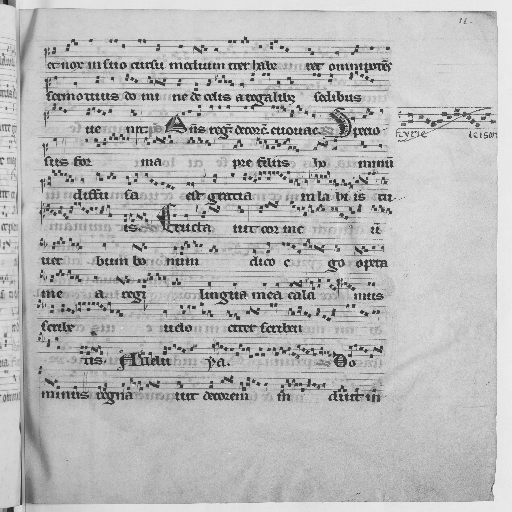 et nox in suo cursu medium iter habe ret omnipotens
sermo tuus do mi ne de celis a regalibus sedibus
ue nit Dns reg. decore. euouae. Specio
sus for ma pre filiis ho minu
diffu sa est gracia in la bi is tu
is Eructa uit cor me u
uer bum bo num dico e go opera
me a regi lingua mea cala mus
scribe uelo citer scriben
tis Allelu ya. Do
minus regna uit decorem in duit in
kyrie leison